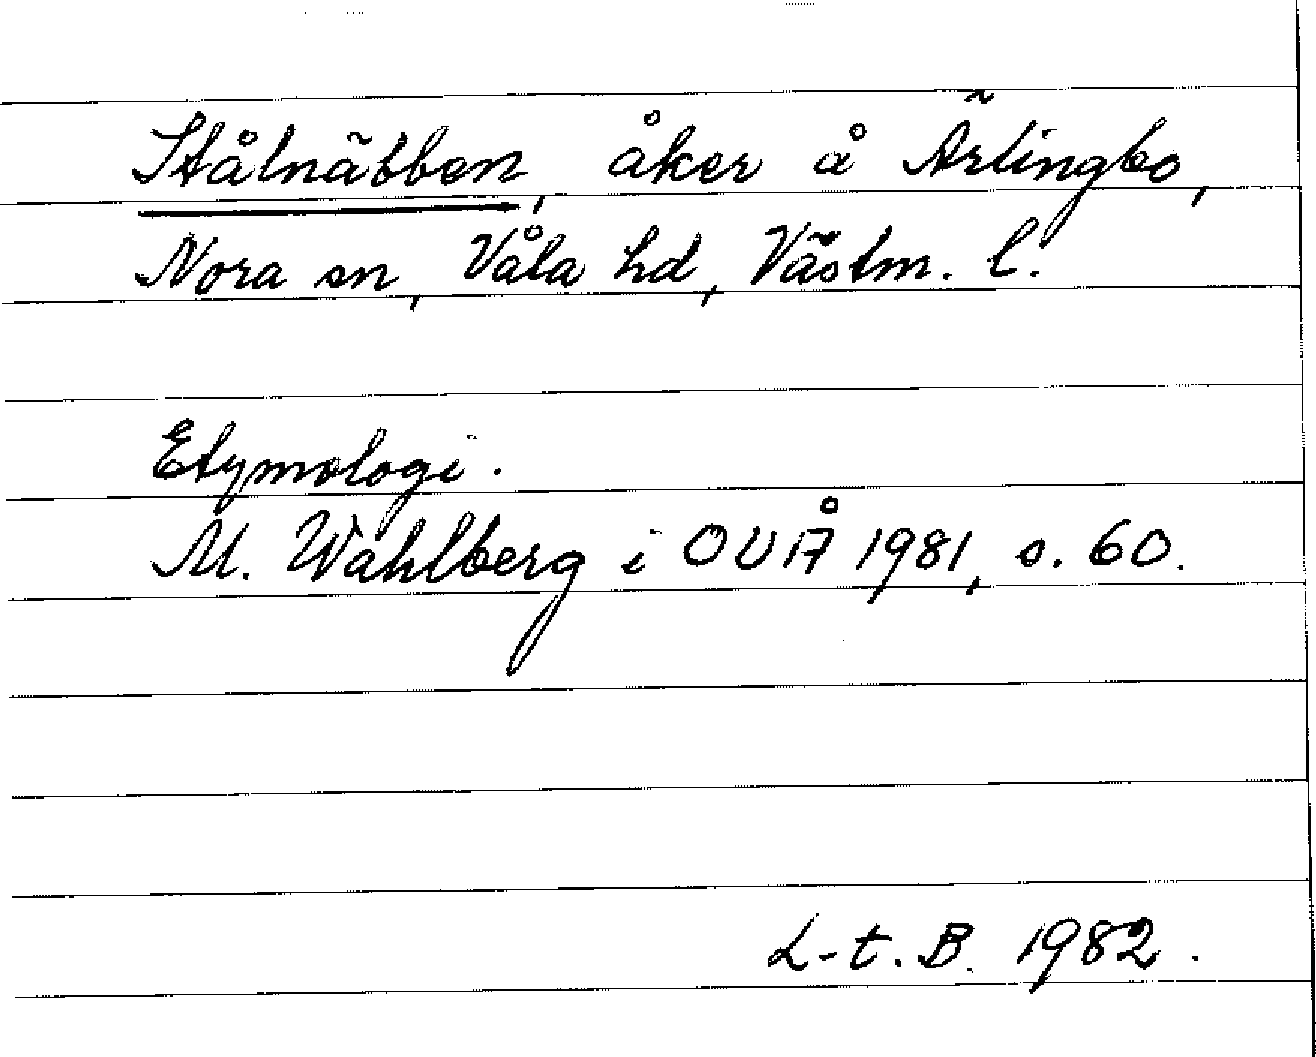 Stålnäbben, åker å Ärlingbo,
Nora sn, Våla hd, Västm. l.
Etymologi.
M. Wahlberg i OUÅ 1981, s. 60.
L-t. B. 1982.